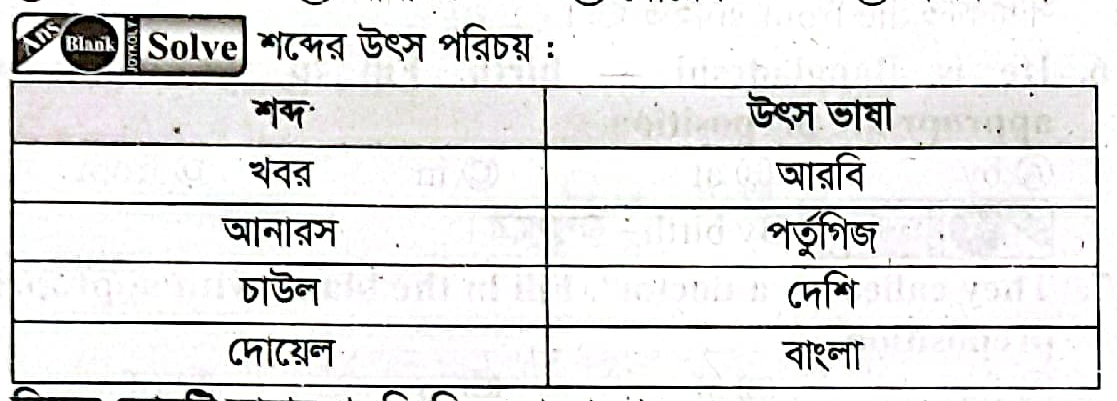 Ans Blank JOYKOLY Solve শব্দের উৎস পরিচয় :
শব্দ উৎস ভাষা
খবর আরবি
আনারস পর্তুগিজ
চাউল দেশি
দোয়েল বাংলা